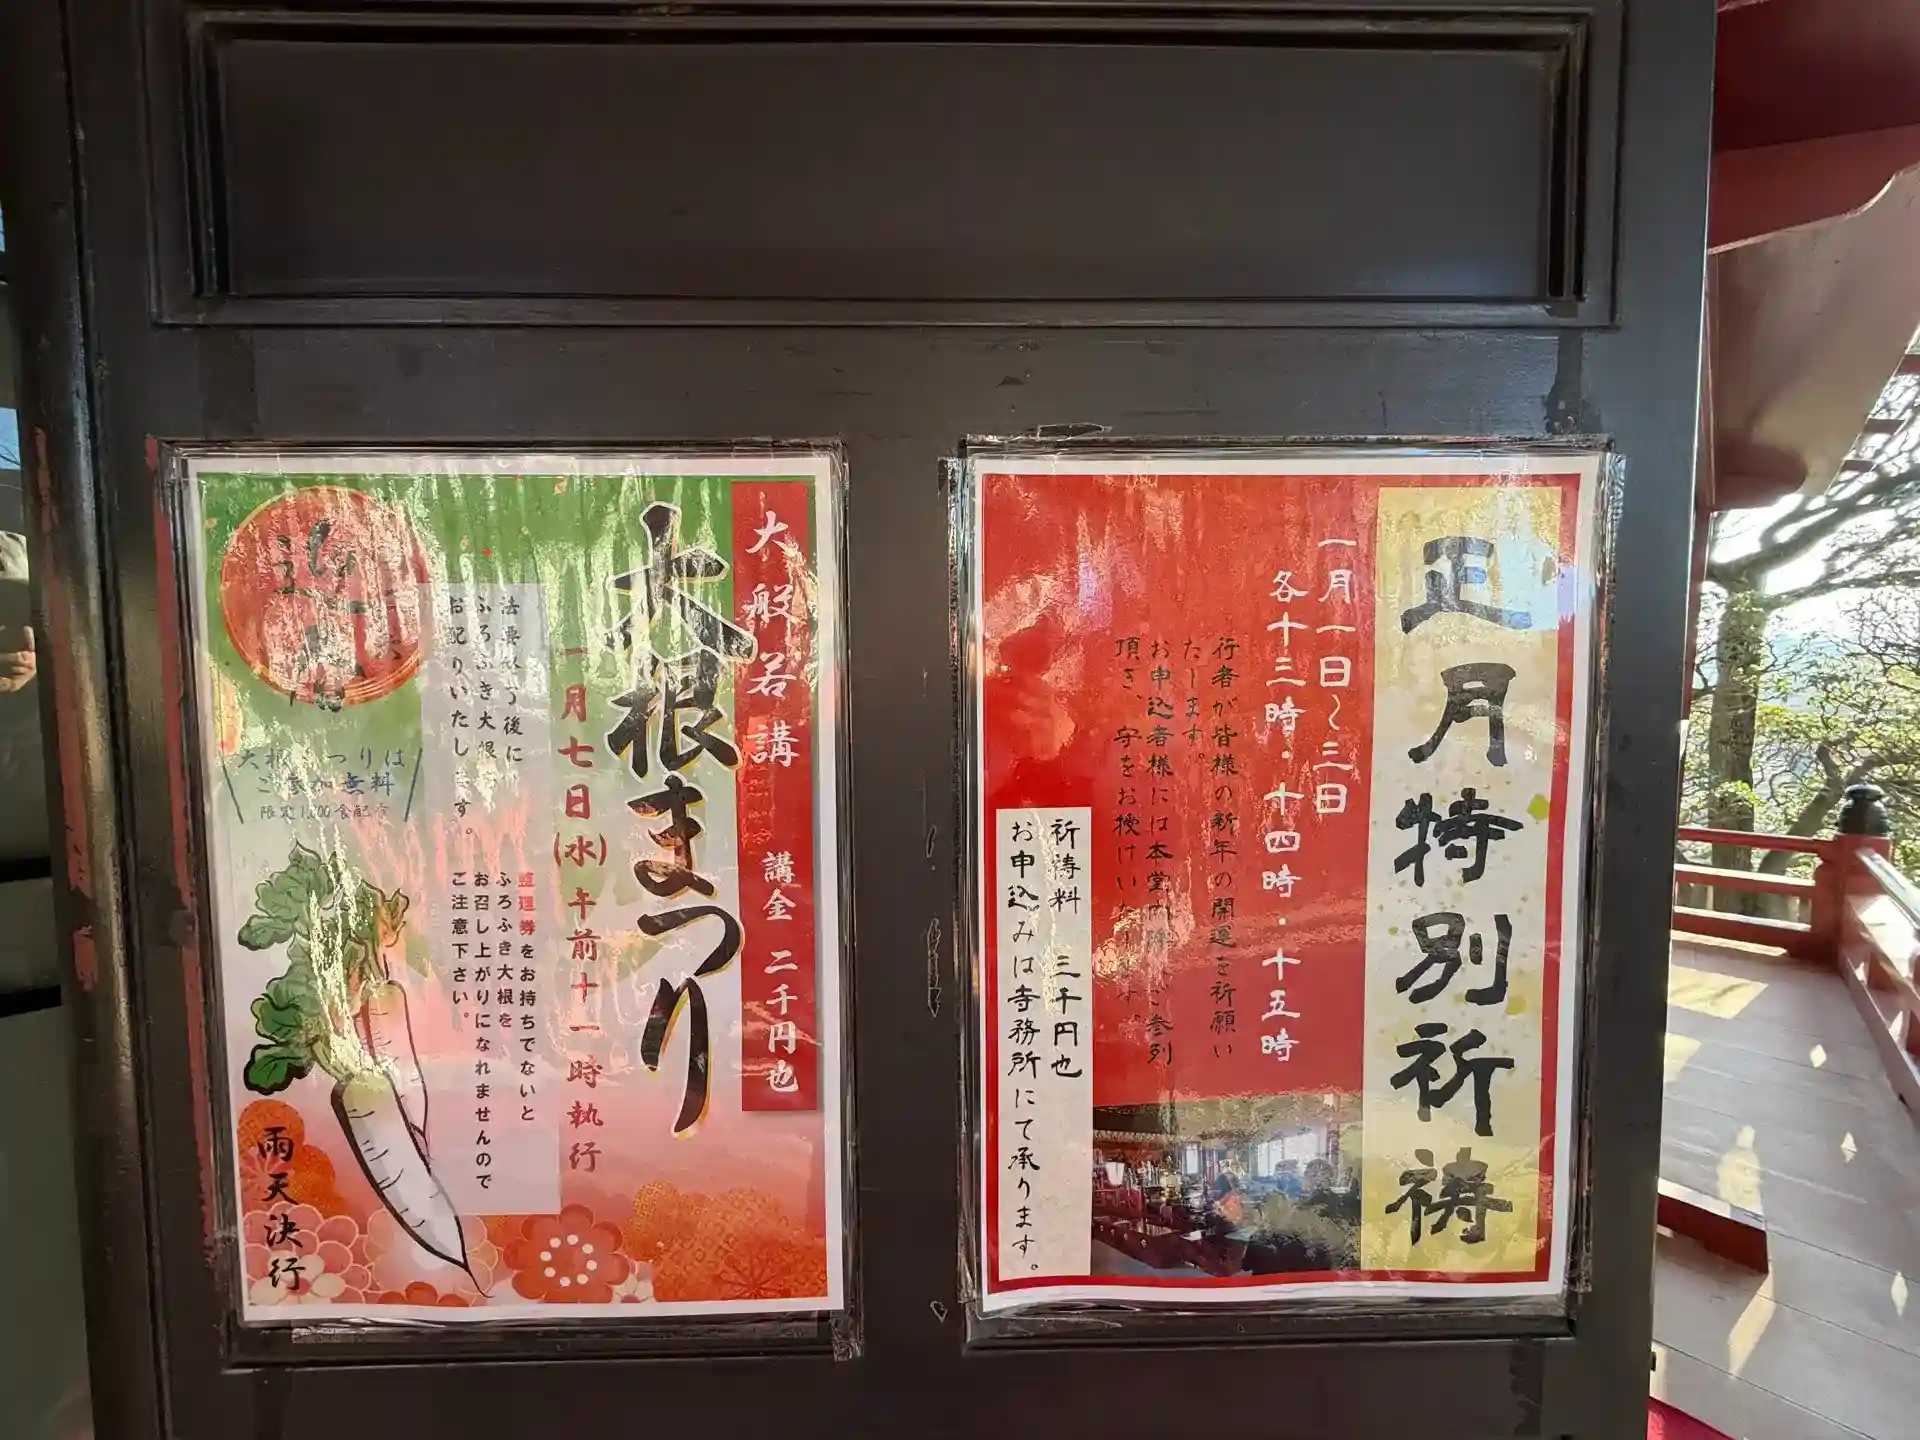 大般若講 講金 二千円也
大根まつり
一月七日(水)午前十一時執行
法要終了後に
ふろふき大根を
お配りいたします。
整理券をお持ちでないと
ふろふき大根を
お召し上がりになれませんので
ご注意下さい。
大根まつりは
ご参加無料
限定1,000食配布
雨天決行
正月特別祈祷
一月一日〜三日
各十三時・十四時・十五時
行者が皆様の新年の開運を祈願い
たします。
お申込者様には本堂内陣へご参列
頂き、守をお授けいたします。
祈祷料 三千円也
お申込みは寺務所にて承ります。